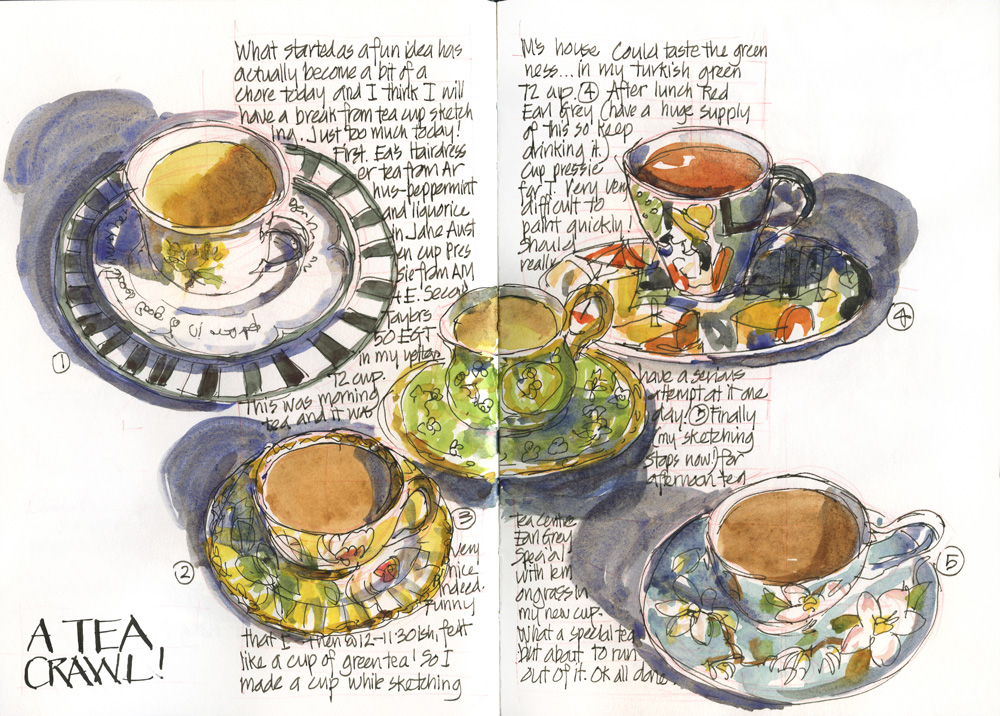 What started as a fun idea has
actually become a bit of a
chore today and I think I will
have a break from tea cup sketch
ing. Just too much today!
First. Ea's Hairdress
er tea from Ar
hus-peppermint
and liquorice
in Jane Aust
en cup Pres
sie from AM
+ E. Second
Taylors
50 EGT
in my yellow
T2 cup.
This was morning
tea and it was
very
nice
indeed.
Funny
that I then at 12-11:30ish, felt
like a cup of green tea! So I
made a cup while sketching
M's house Could taste the green
ness... in my turkish green
T2 cup. 4 After lunch Red
Earl Grey (have a huge supply
of this so keep
drinking it)
Cup pressie
for J. Very very
difficult to
paint quickly!
Should
really
have a serious
attempt at it one
day. 5 Finally
(my sketching
stops now!) for
afternoon tea
Tea Centre
Earl Grey
Special
with lem
ongrass in
my new cup.
What a special tea
but about to run
out of it. OK all done.
1
2
3
4
5
A TEA
CRAWL!